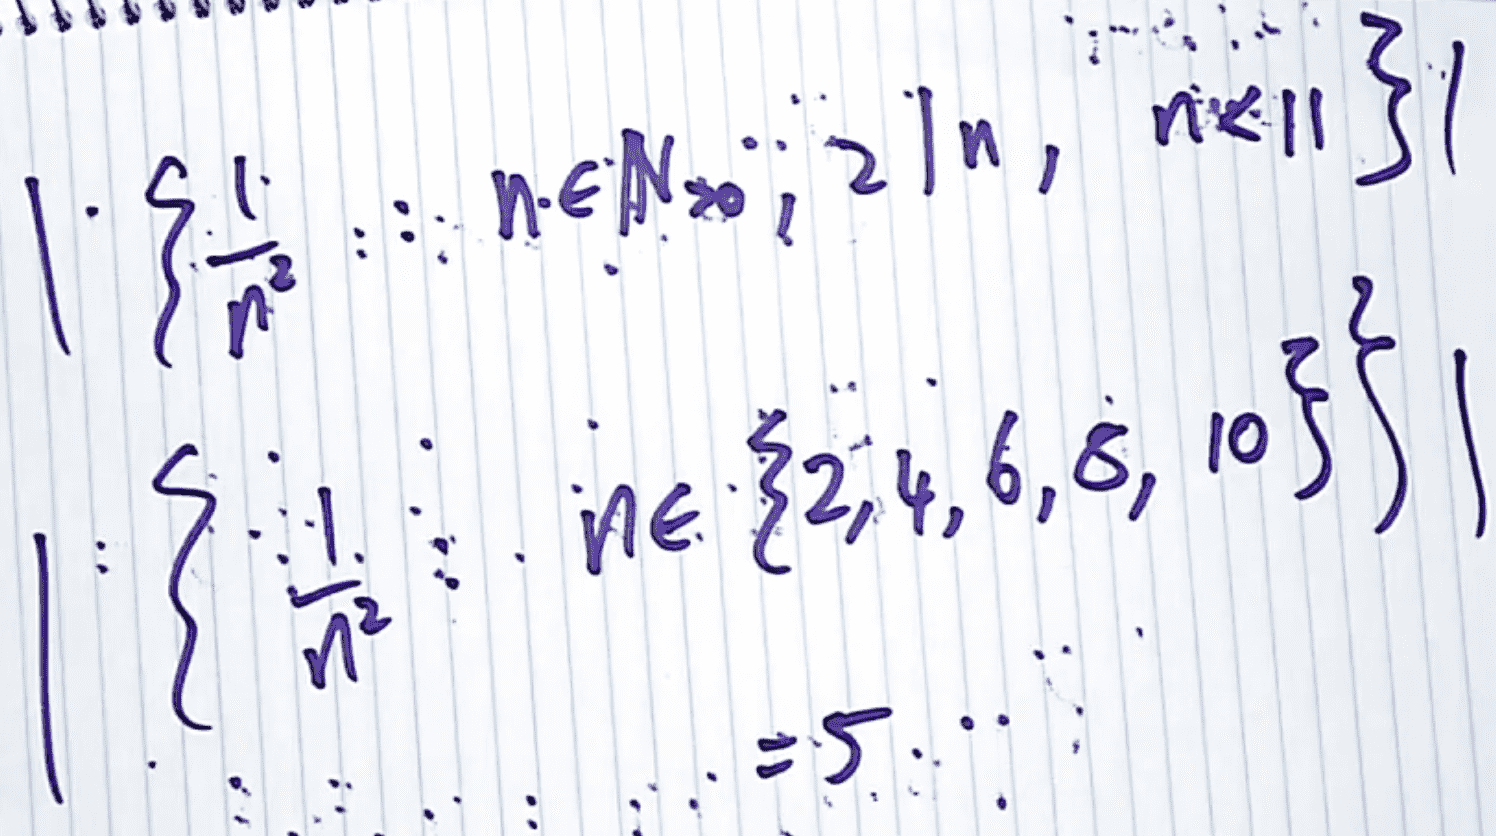 |{1/n² : n∈ℕ>0, 2|n, n<11}|
|{1/n² : n∈{2,4,6,8,10}}|
=5